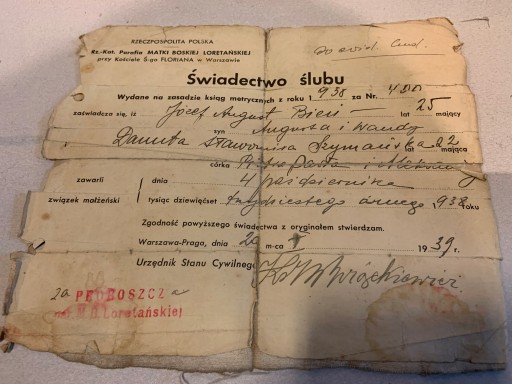 RZECZPOSPOLITA POLSKA
Rz.-Kat. Parafia MATKI BOSKIEJ LORETAŃSKIEJ
przy Kościele Ś-go FLORIANA w Warszawie
Świadectwo ślubu
Wydane na zasadzie ksiąg metrycznych z roku 1938 za Nr. 400
zaświadcza się, iż Józef August Bień lat 25 mający
syn Augusta i Wandy
Danuta Sławomira Szymańska lat 22 mająca
córka
zawarli dnia 4 października
związek małżeński tysiąc dziewięćset trzydziestego ósmego 1938 roku
Zgodność powyższego świadectwa z oryginałem stwierdzam.
Warszawa-Praga, dnia m-ca 1939 r.
Urzędnik Stanu Cywilnego
PROBOSZCZ
M.B. Loretańskiej